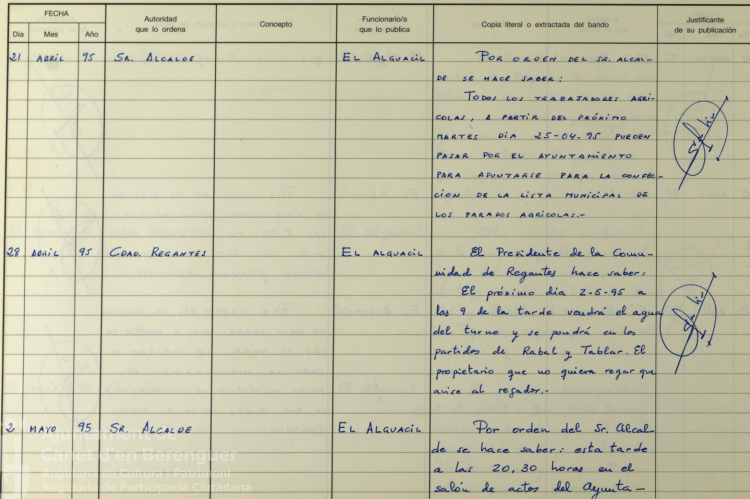 FECHA
Día Mes Año
Autoridad
que lo ordena
Concepto
Funcionario/a
que lo publica
Copia literal o extractada del bando
Justificante
de su publicación
21 ABRIL 95 SR. ALCALDE EL ALGUACIL POR ORDEN DEL SR. ALCAL-
DE SE HACE SABER:
TODOS LOS TRABAJADORES AGRI-
COLAS, A PARTIR DEL PRÓXIMO
MARTES DIA 25-04-95 PUEDEN
PASAR POR EL AYUNTAMIENTO
PARA APUNTARSE PARA LA CONFEC-
CION DE LA LISTA MUNICIPAL DE
LOS PARADOS AGRICOLAS.-
28 ABRIL 95 CDAD. REGANTES EL ALGUACIL El Presidente de la Comu-
nidad de Regantes hace saber:
El próximo dia 2-5-95 a
las 9 de la tarde vendrá el agua
del turno y se pondrá en los
partidos de Rabal y Tablar. El
propietario que no quiera regar que
avise al regador.-
2 MAYO 95 SR. ALCALDE EL ALGUACIL Por orden del Sr. Alcal-
de se hace saber: esta tarde
a las 20,30 horas en el
salón de actos del Ayunta-
Ajuntament de
Canet d'en Berenguer
Regidoria de Cultura i Patrimoni
Regidoria de Participació Ciutadana